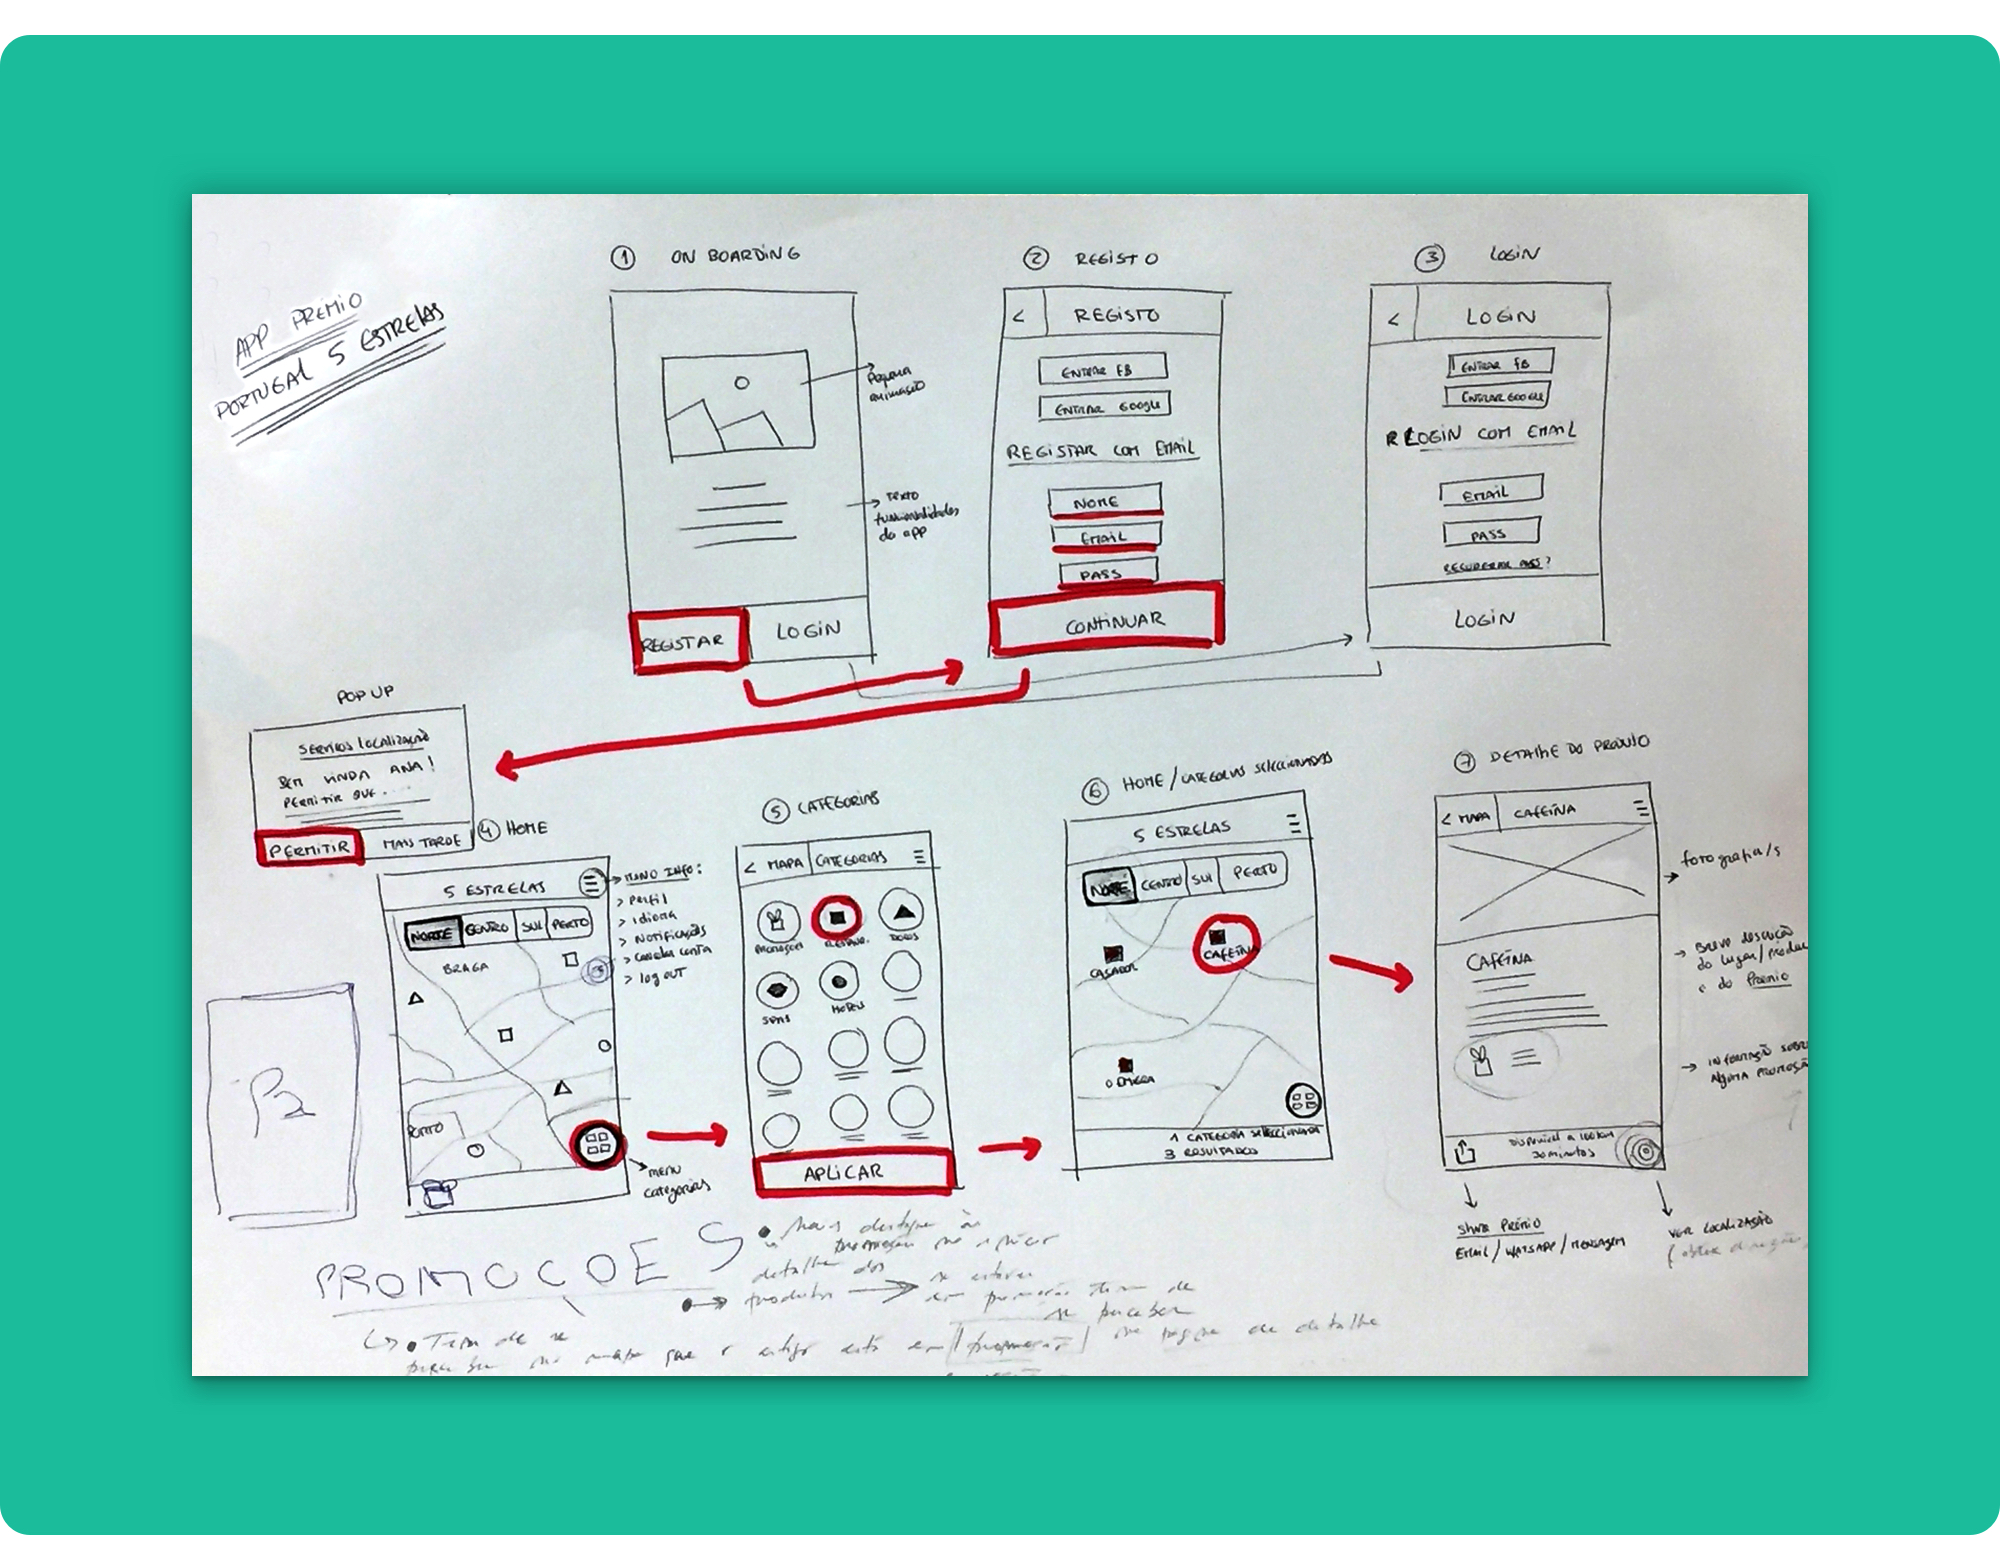 APP PREMIO
PORTUGAL 5 ESTRELAS
1 ON BOARDING
Pequena
animação
Texto
funcionalidades
do app
REGISTAR
LOGIN
2 REGISTO
< REGISTO
ENTRAR FB
ENTRAR GOOGLE
REGISTAR COM EMAIL
NOME
EMAIL
PASS
CONTINUAR
3 LOGIN
< LOGIN
ENTRAR FB
ENTRAR GOOGLE
LOGIN COM EMAIL
EMAIL
PASS
RECUPERAR PASS?
LOGIN
POP UP
SERVIÇOS LOCALIZAÇÃO
BEM VINDA ANA!
PERMITIR QUE....
PERMITIR
MAIS TARDE
4 HOME
5 ESTRELAS
NORTE CENTRO SUL PERTO
BRAGA
PORTO
MENU INFO:
> Perfil
> idioma
> Notificações
> Cancelar conta
> log out
menu
categorias
P2
5 CATEGORIAS
< MAPA CATEGORIAS
PROMOÇÕES
RESTAUR.
SPAS
HOTEIS
APLICAR
6 HOME/CATEGORIAS SELECCIONADAS
5 ESTRELAS
NORTE CENTRO SUL PERTO
CAFEÍNA
CASADOR
1 CATEGORIA SELECCIONADA
3 RESULTADOS
7 DETALHE DO PRODUTO
< MAPA CAFEÍNA
fotografia/s
CAFEÍNA
Breve descrição
do lugar/
e do Prémio
INFORMAÇÃO SOBRE
Alguma PROMOÇÃO
Disponível a 100km
30minutos
Share Prémio
EMAIL/WATSAPP/MENSAGEM
VER LOCALIZAÇÃO
PROMOCOES
• Mais destaque às
detalhe dos
produtos
se estiver
em promoção Tem de
se perceber
na página de detalhe
• Tem de se
perceber no mapa que o artigo está em promoção